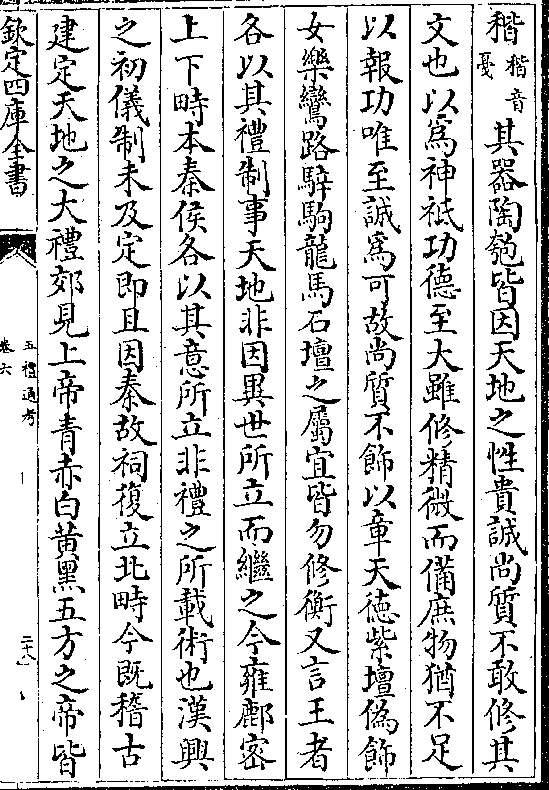 稭稭音戞其器陶匏皆因天地之性貴誠尚質不敢修其
文也以為神祇功德至大雖修精微而備庶物猶不足
以報功唯至誠為可故尚質不飾以章天德紫壇偽飾
女樂鸞路騂駒龍馬石壇之屬宜皆勿修衡又言王者
各以其禮制事天地非因異世所立而繼之今雍鄜密
上下畤本秦侯各以其意所立非禮之所載術也漢興
之初儀制未及定即且因秦故祠復立北畤今既稽古
建定天地之大禮郊見上帝青赤白黄黑五方之帝皆
欽定四庫全書
五禮通考
卷六
二十八